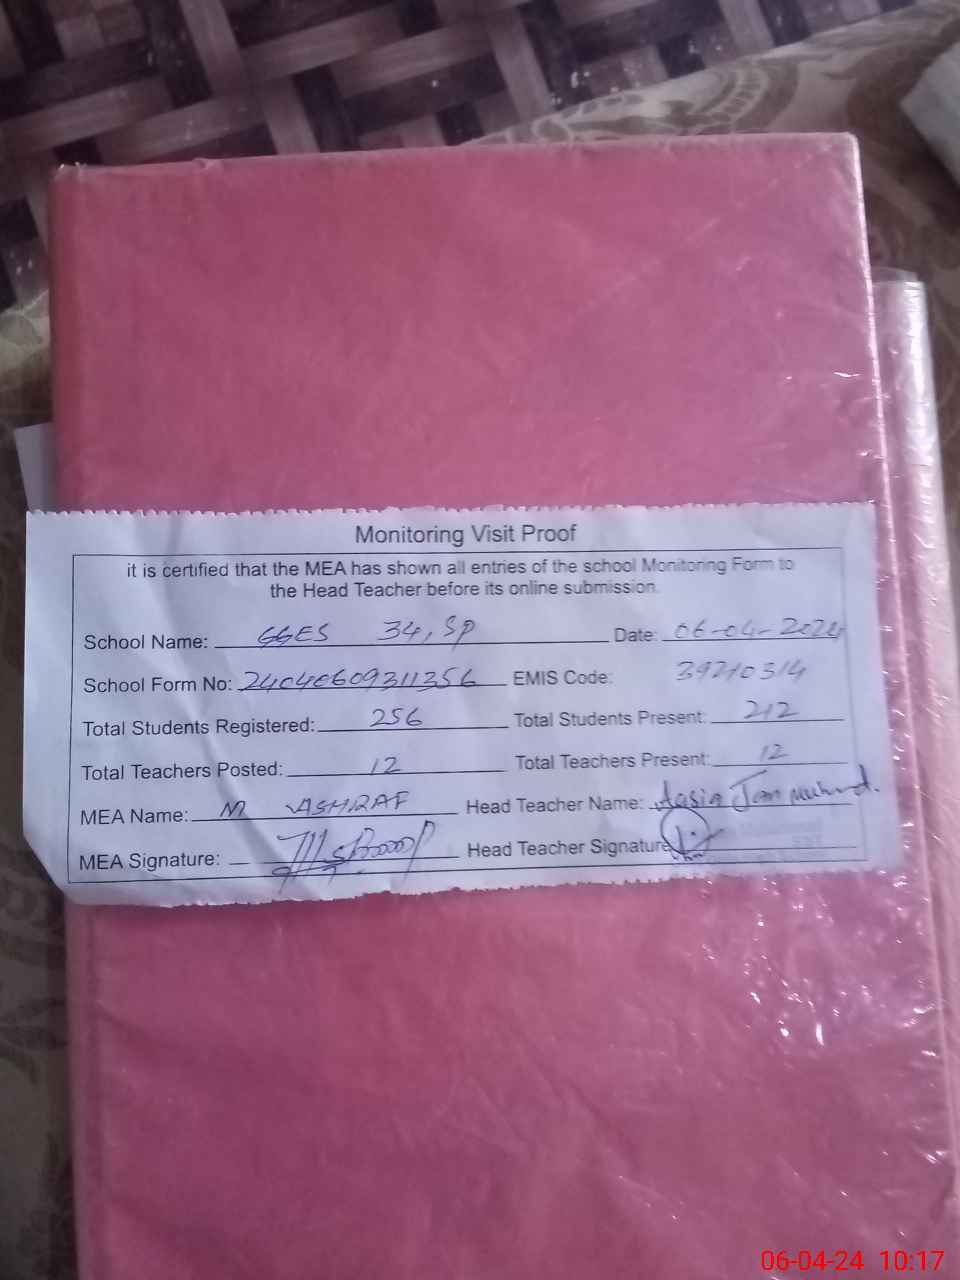 Monitoring Visit Proof
it is certified that the MEA has shown all entries of the school Monitoring Form to
the Head Teacher before its online submission.
School Name: GGES 34, SP Date: 06-04-2024
School Form No: 24040609311356 EMIS Code: 39210314
Total Students Registered: 256 Total Students Present: 212
Total Teachers Posted: 12 Total Teachers Present: 12
MEA Name: M ASHRAF Head Teacher Name: Aasia Jan
MEA Signature: Head Teacher Signature
06-04-24 10:17